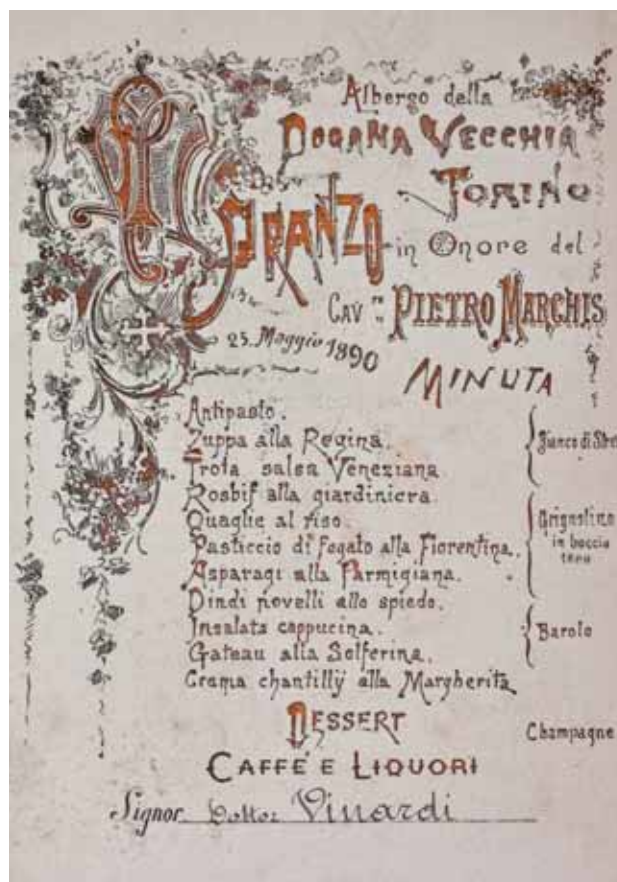 Albergo della
DOGANA VECCHIA
TORINO
PRANZO in Onore del
CAV.re PIETRO MARCHIS
25. Maggio 1890
MINUTA
Antipasto.
Zuppa alla Regina.
Trota salsa Veneziana
Rosbif alla giardiniera.
Quaglie al riso.
Pasticcio di fegato alla Fiorentina.
Asparagi alla Parmigiana.
Dindi novelli allo spiedo.
Insalata cappucina.
Gateau alla Solferina.
Crema chantillÿ alla Margherita
Bianco di
Grignolino
in boccia
Barolo
Champagne
DESSERT
CAFFÈ E LIQUORI
Signor Dottor Vinardi